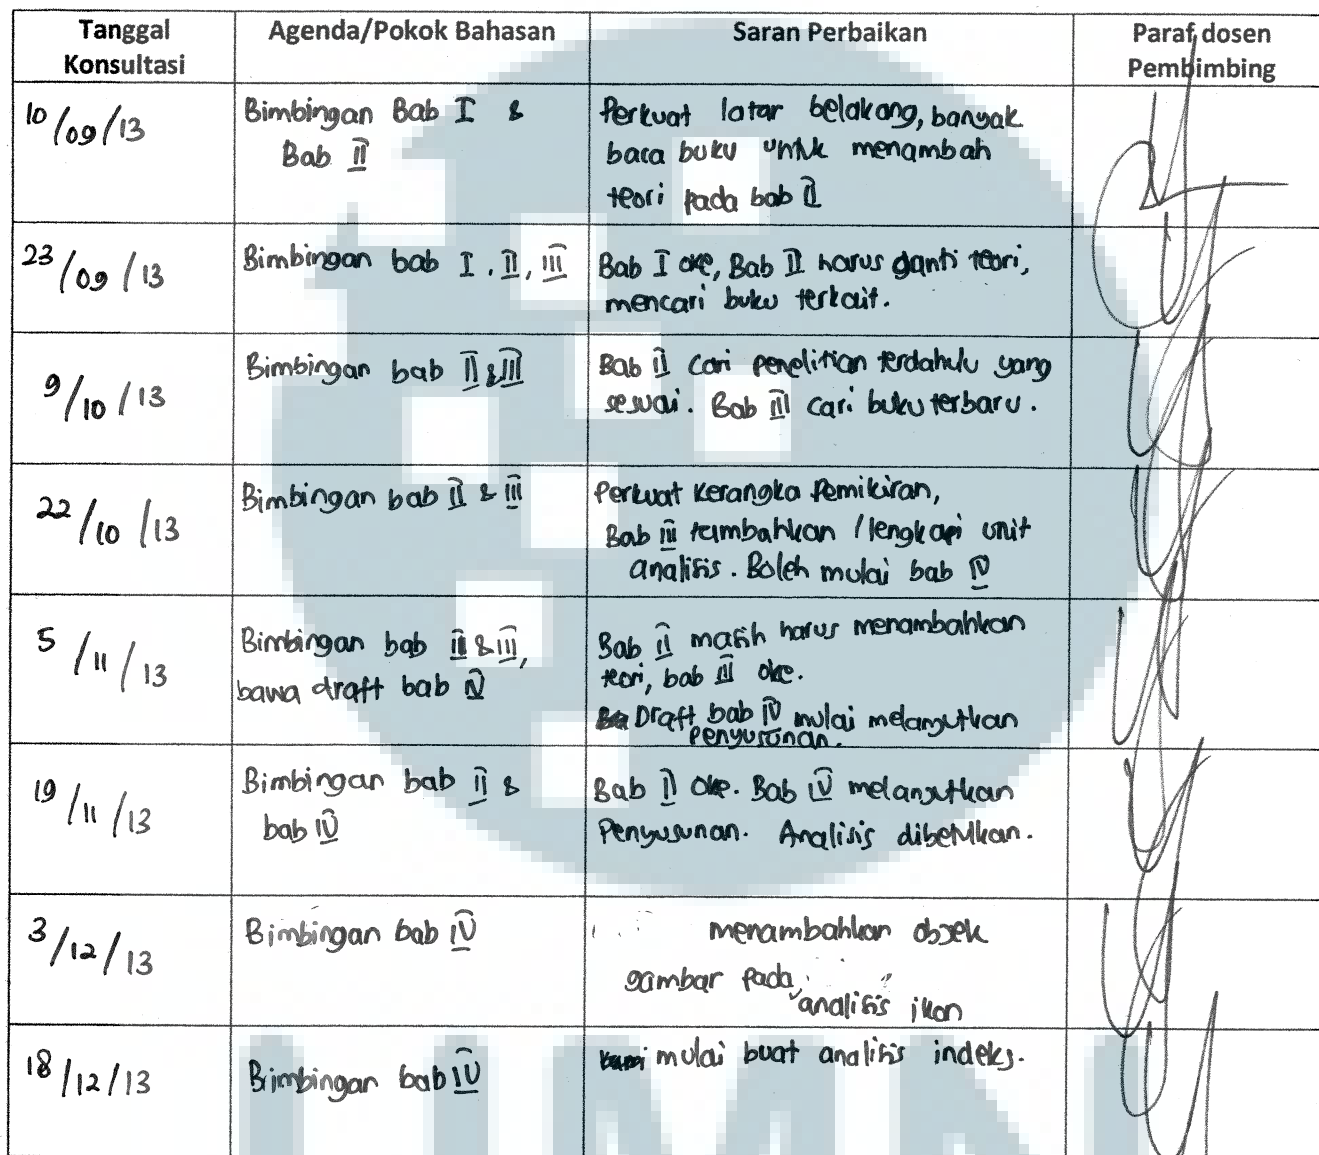 Tanggal Konsultasi Agenda/Pokok Bahasan Saran Perbaikan Paraf dosen Pembimbing
10/09/13
Bimbingan Bab I &
Bab II
Perkuat latar belakang, banyak
baca buku untuk menambah
teori pada bab II
23/09/13
Bimbingan bab I, II, III
Bab I oke, Bab II harus ganti teori,
mencari buku terkait.
9/10/13
Bimbingan bab II & III
Bab II cari penelitian terdahulu yang
sesuai. Bab III cari buku terbaru.
22/10/13
Bimbingan bab II & III
Perkuat Kerangka Pemikiran,
Bab III tambahkan / lengkapi unit
analisis. Boleh mulai bab IV
5/11/13
Bimbingan bab II & III,
bawa draft bab IV
Bab II masih harus menambahkan
teori, bab III oke.
Draft bab IV mulai melanjutkan
penyusunan.
19/11/13
Bimbingan bab II &
bab IV
Bab II oke. Bab IV melanjutkan
Penyusunan. Analisis dibetulkan.
3/12/13
Bimbingan bab IV
menambahkan objek
gambar pada
analisis ikon
18/12/13
Bimbingan bab IV
mulai buat analisis indeks.
UMN